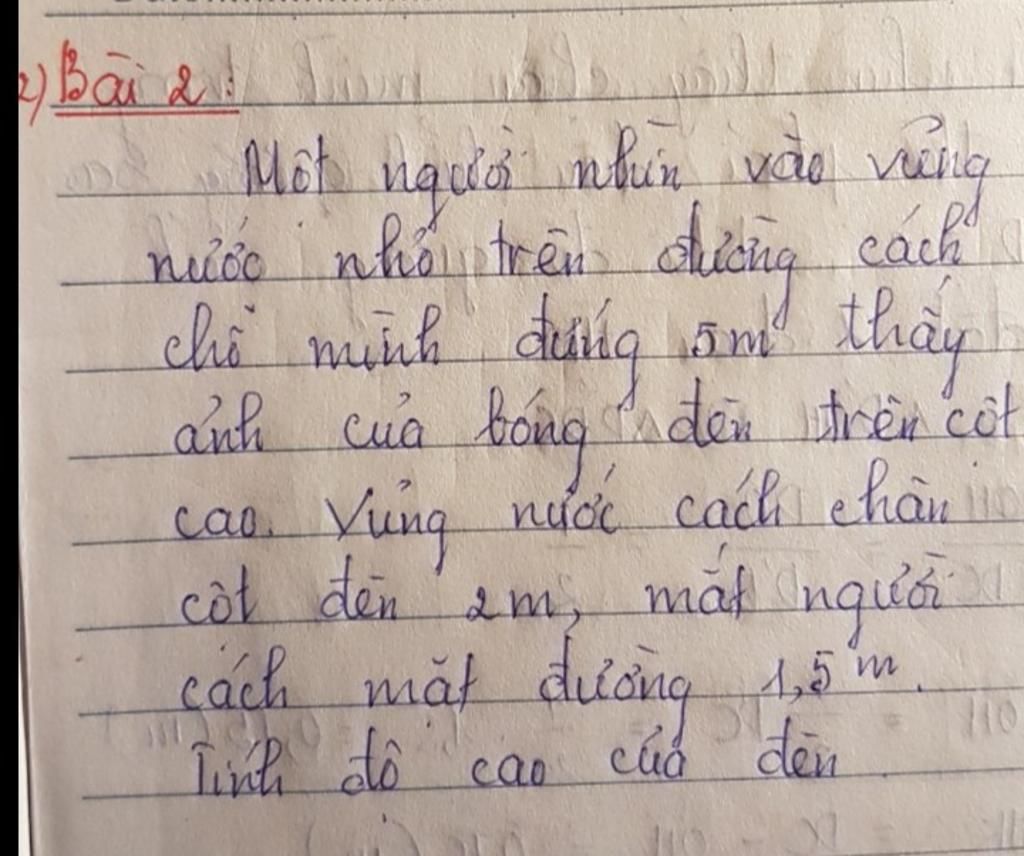 2) Bài 2:
Một người nhìn vào vũng
nước nhỏ trên đường cách
chỗ mình đứng 5m thấy
ảnh của bóng đèn trên cột
cao. Vũng nước cách chân
cột đèn 2m, mắt người
cách mặt đường 1,5m.
Tính độ cao của đèn